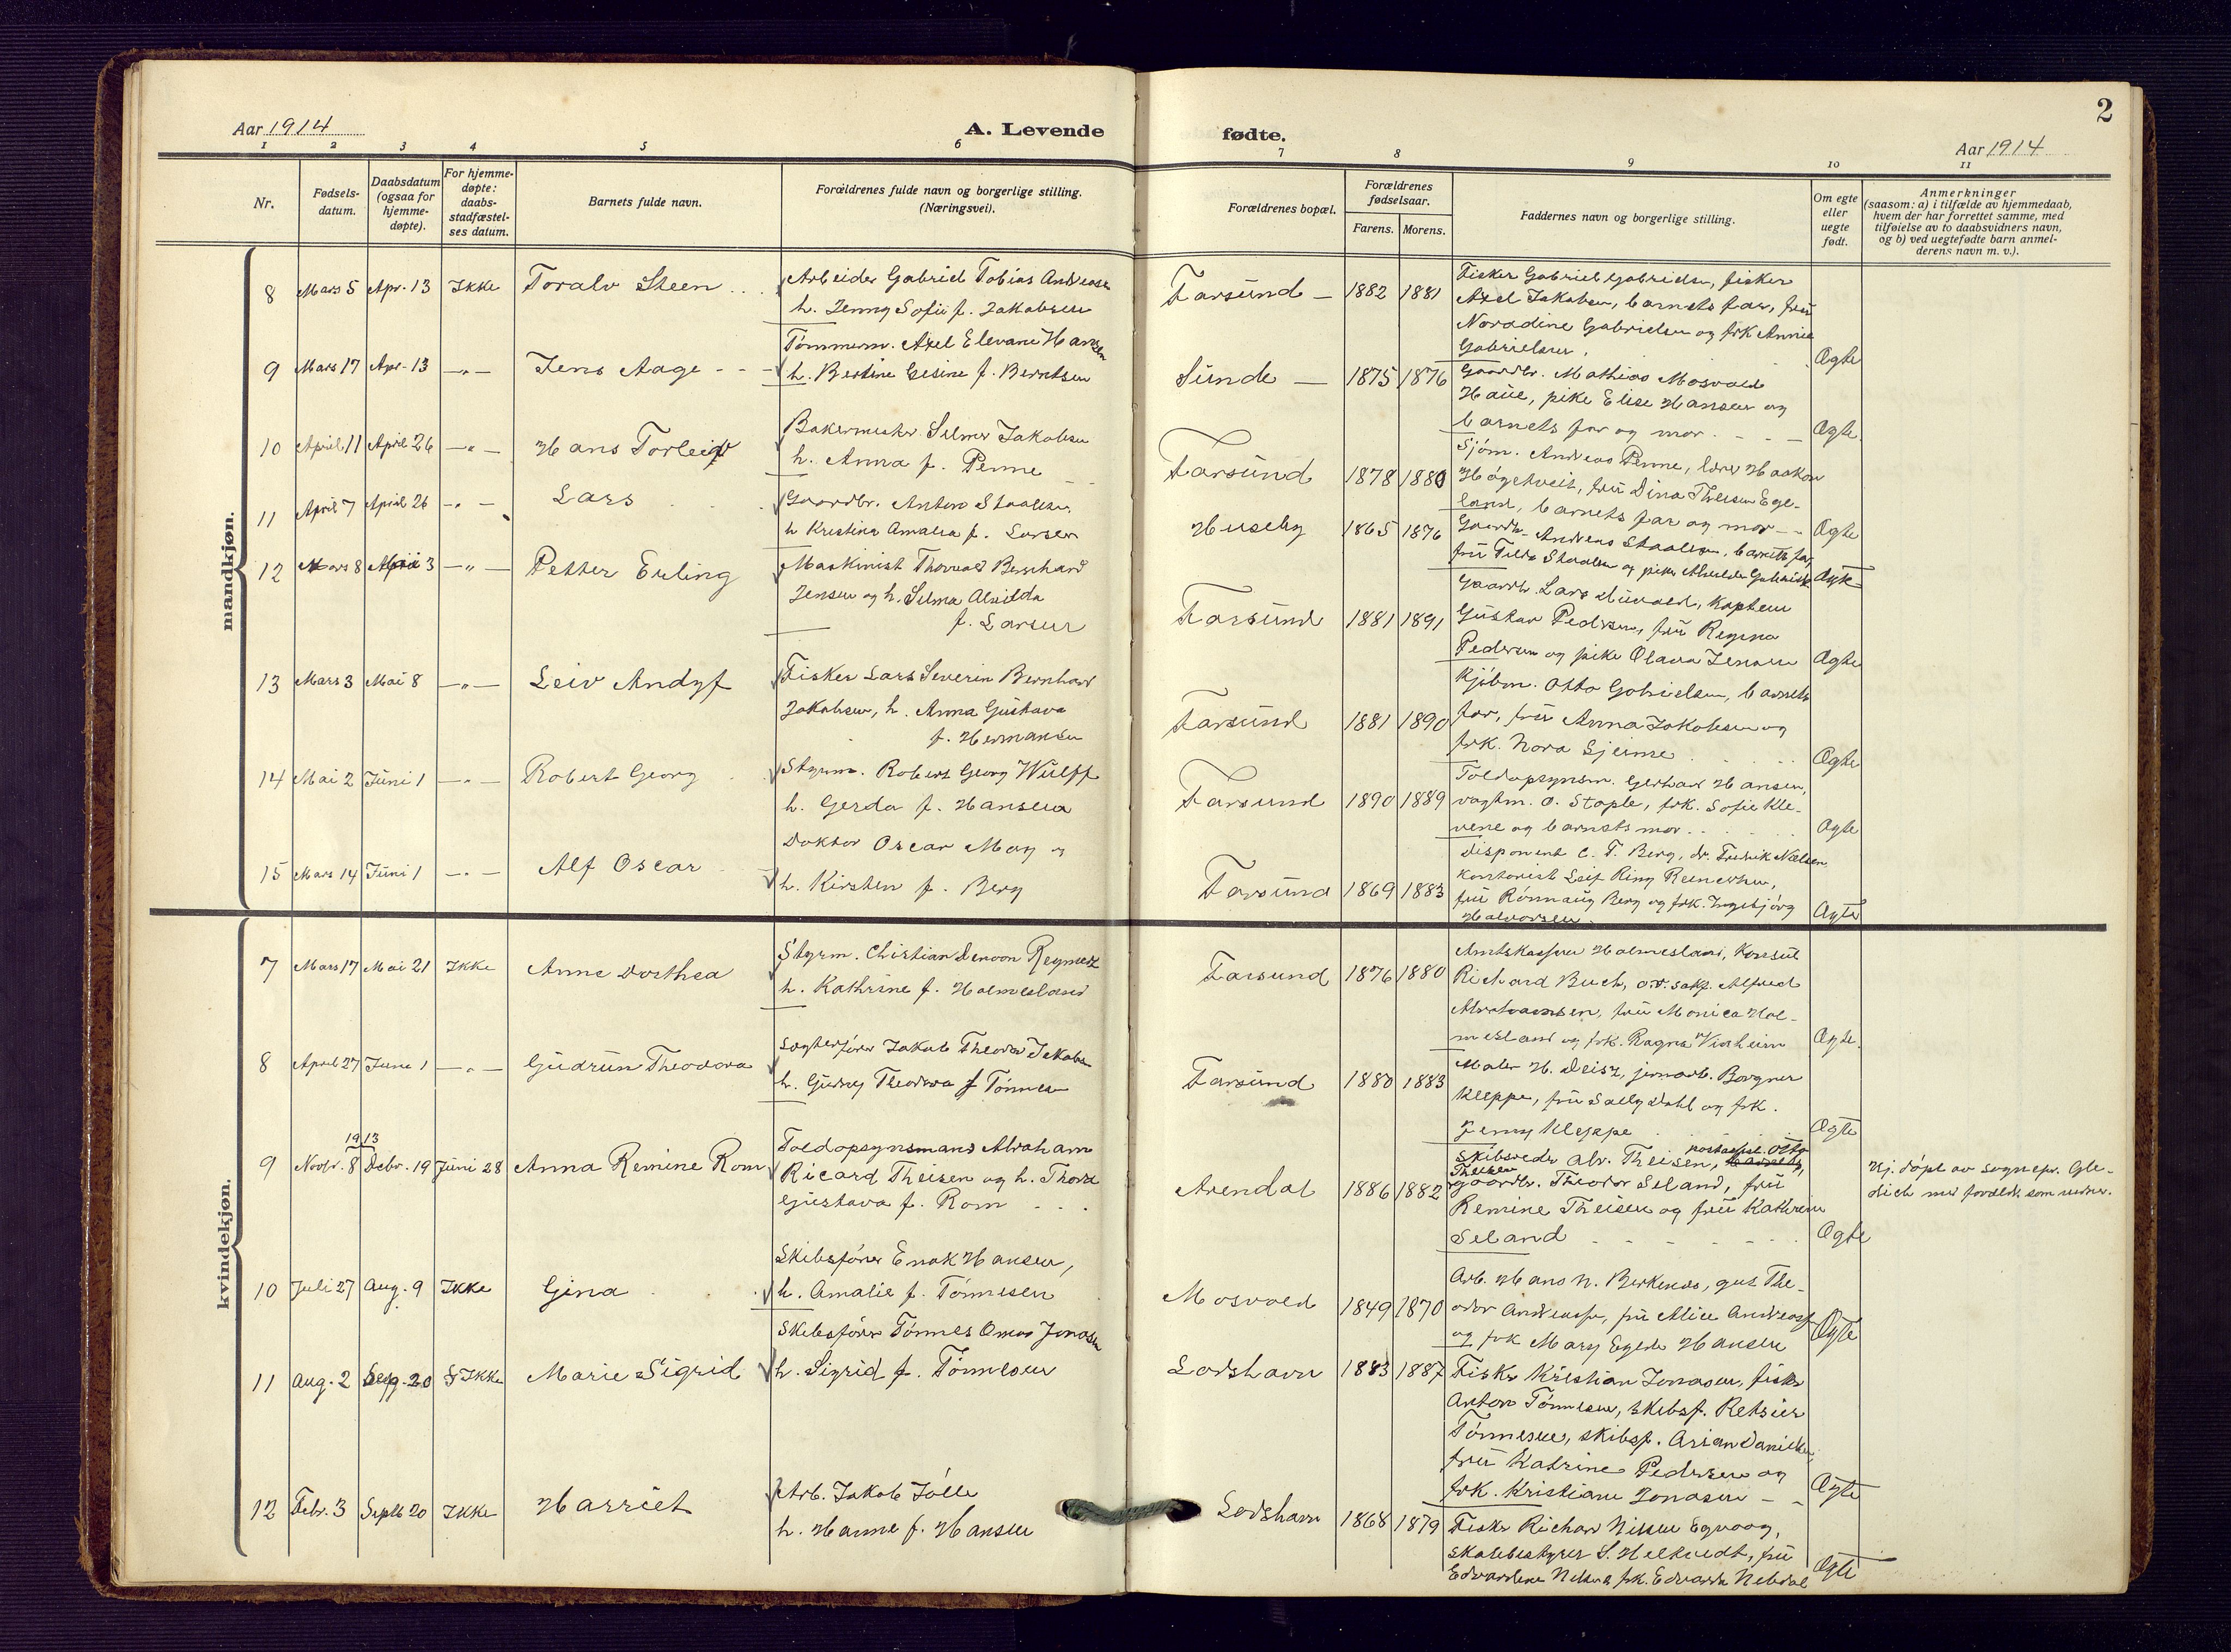 2
Aar 1914
A. Levende
fødte.
Aar 1914
1 2 3 4 5 6 7 8 9 10 11
Nr.
Fødsels-
datum.
Daabsdatum
(ogsaa for
hjemme-
døpte).
For hjemme-
døpte:
daabs-
stadfæstel-
ses datum.
Barnets fulde navn.
Forældrenes fulde navn og borgerlige stilling.
(Næringsvei).
Forældrenes bopæl.
Forældrenes
fødselsaar.
Farens. Morens.
Faddernes navn og borgerlige stilling.
Om egte
eller
uegte
født.
Anmerkninger
(saasom: a) i tilfælde av hjemmedaab,
hvem der har forrettet samme, med
tilføielse av to daabsvidners navn,
og b) ved uegtefødte barn anmel-
derens navn m. v.).
mandkjøn.
8 Mars 5 Apr. 13 Ikke Toralv Steen
Arbeider Gabriel Tobias Andreasen
h. Jenny Sofie f. Jakobsen
Farsund 1882 1881
Fisker Gabriel Gabrielsen, fisker
Axel Jakobsen, barnets far, frü
Noradine Gabrielsen og frk Annie
Gabrielsen.
Ægte
9 Mars 17 Apr. 13 -"- Jens Aage
Tømmerm. Axel Elevani Hansen
h. Bertine Gesine f. Berntsen
Sunde 1875 1876
Gaardbr. Mathias Mosvold
Haüe, pike Elise Hansen og
barnets far og mor
Ægte
10 April 11 April 26 -"- Hans Torleif
Bakermester Selmer Jakobsen
h. Anna f. Penne
Farsund 1878 1880
Sjøm. Andreas Penne, lærer Haakon
Høgetveit, frü Dina Theisen Ege-
land, barnets far og mor
Ægte
11 April 7 April 26 -"- Lars
Gaardbr. Anton Staalesen
h Kristine Amalia f. Larsen
Huseby 1865 1876
Gaardb. Andreas Staalesen, barnets far,
frü Tilda Staalesen og pike
Ægte
12 Mars 8 April 3 -"- Petter Erling
Maskinist Thorvald Bernhard
Jensen og h. Selma Alvilda
f. Larsen
Farsund 1881 1891
Gaardb. Lars, Kaptein
Gustav Pedersen, frü Regina
Pedersen og pike Olava Jensen
Ægte
13 Mars 3 Mai 8 -"- Leiv Andyf
Fisker Lars Severin Bernhard
Jakobsen, h. Anna Güstava
f. Hermansen
Farsund 1881 1890
Kjøbm. Otto Gabrielsen, barnets
far, frü Anna Jakobsen og
frk. Nora Gjerme
Ægte
14 Mai 2 Jüni 1 -"- Robert Georg
Styrm. Robert Georg Wülff
h. Gerda f. Hansen
Farsund 1890 1889
Toldopsynsm. Gerhard Hansen,
vagtm. O. Stople, frk. Sofie Kle-
vene og barnets mor
Ægte
15 Mars 14 Jüni 1 -"- Alf Oscar
Doktor Oscar May og
h. Kirsten f. Berg
Farsund 1869 1883
Disponent C. T. Berg, dr. Fredrik Nælsen
Kontorist Leif Ring Reinertsen,
frü Rønnaüg Berg og frk. Ingebjørg
Halvorsen
Ægte
kvindekjøn.
7 Mars 17 Mai 21 Ikke Anne Dorthea
Styrm. Christian Denoon Reymert
h. Kathrine f. Holmesland
Farsund 1876 1880
Amtskasserer Holmesland, Konsül
Richard Buch, o.r.sakf. Alfred
Abrahamsen, frü Monica Hol-
mesland og frk. Ragna Vinheim
Ægte
8 April 27 Jüni 1 -"- Güdrün Theodora
Sagfører Jakob Theodor Jakobsen
h. Güdny Theodora f Tønnesen
Farsund 1880 1883
Maler H. Deisz, jernarb. Borgner
Kleppe, frü Sally Dahl og frk.
Jenny Kleppe
Ægte
1913
9 Novbr. 8 Debr. 19 Jüni 28 Anna Remine Rom
Toldopsynsmand Abraham
Ricard Theisen og h. Thora
Güstava f. Rom
Arendal 1886 1882
Skibsreder Abr. Theisen, Otto
Theisen
gaardbr. Theodor Seland, frü
Remine Theisen og frü Kathrine
Seland
Ægte
Hj. døpt av sogneprest Gle-
ditch med foreldr som vidner.
10 Juli 27 Aug. 9 Ikke Gina
Skibsfører Enok Hansen,
h. Amalie f. Tønnesen
Mosvold 1849 1870
Arb. Hans N. Birkenes, gut The-
odor Andreassen, frü Alice Andreassen
og frk Mary Egede Hansen
Ægte
11 Aug. 2 Sep. 20 Ikke Marie Sigrid
Skibsfører Tønnes Omar Jonasen
h. Sigrid f. Tønnesen
Lodshavn 1883 1887
Fisker Kristian Jonasen, fisker
Anton Tønnesen, skibsf. Retsius
Tønnesen, skibsf. Arian Danielsen,
frü Katrine Pedersen og
frk. Kristiane Jonasen
Ægte
12 Febr. 3 Septb 20 Ikke Harriet
Arb. Jakob Jølle
h. Hanne f. Hansen
Lodshavn 1868 1879
Fisker Richard Nilsen Egvaag,
skolebestyrer S. Helkvedt, frü
Edvardine Nilsen &amp; frk. Edvarda Nebdal
Ægte